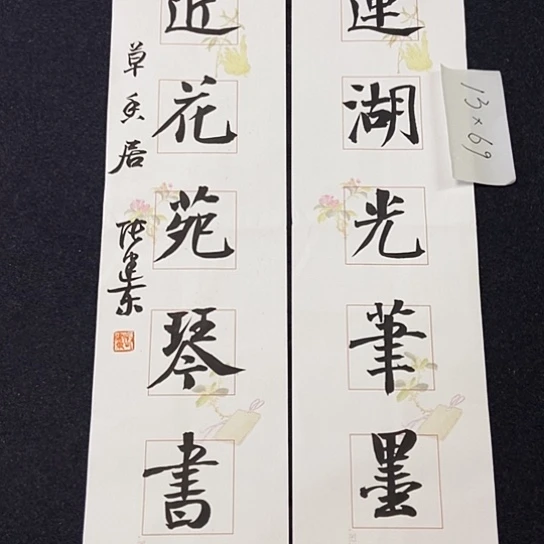 連湖光筆墨
近花苑琴書
草香居
13×69